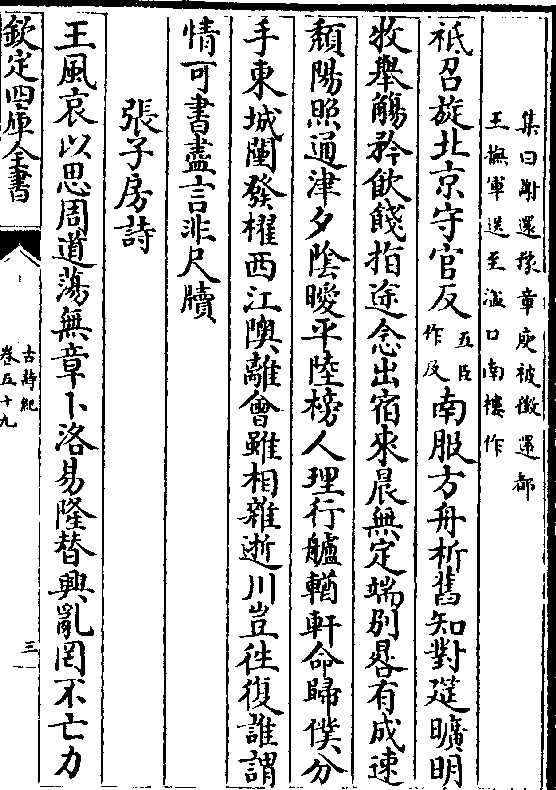 集曰謝還豫章庾被徵還都
王撫軍送至湓口南樓作
祗召旋北京守官反
五臣
作及
南服方舟析舊知對筵曠明
牧舉觴矜飲餞指途念出宿來晨無定端別晷有成速
頹陽照通津夕陰曖平陸榜人理行艫輶軒命歸僕分
手東城闉發櫂西江隩離會雖相雜逝川豈往復誰謂
情可書盡言非尺牘
張子房詩
王風哀以思周道蕩無章卜洛易隆替興亂罔不亡力
欽定四庫全書
古詩紀
卷五十九
三